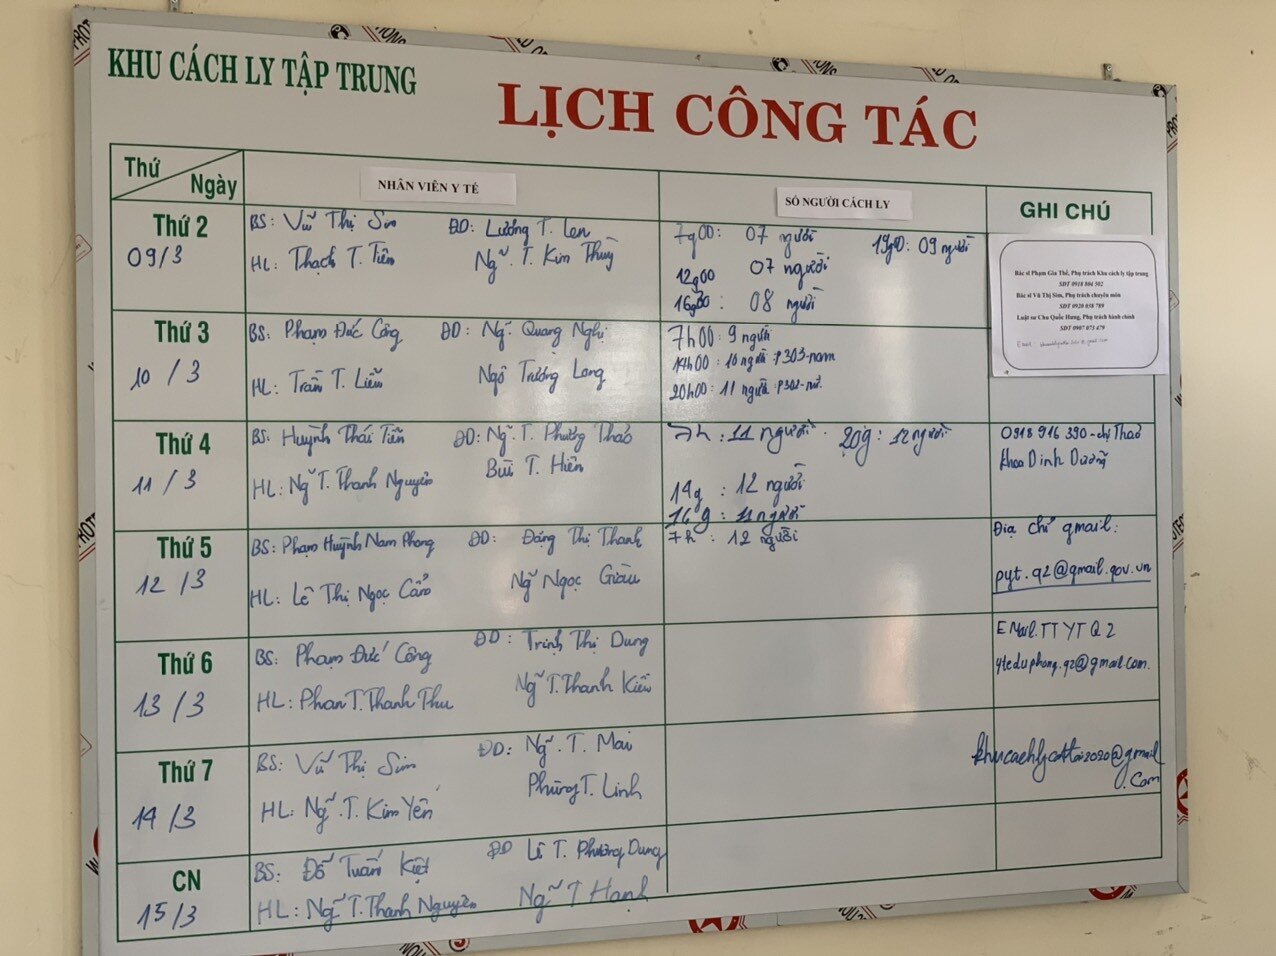 KHU CÁCH LY TẬP TRUNG
LỊCH CÔNG TÁC
Thứ
Ngày
NHÂN VIÊN Y TẾ
SỐ NGƯỜI CÁCH LY
GHI CHÚ
Thứ 2
09/3
BS: Vũ Thị Sim ĐD: Lương T. Len
HL: Thạch T. Tiên Ng~. T. Kim Thủy
7g00: 07 người 19g00: 09 người
12g00 07 người
16g30: 08 người
Bác sĩ Phạm Gia Thế, Phụ trách Khu cách ly tập trung
SĐT 0918 804 502
Bác sĩ Vũ Thị Sim, Phụ trách chuyên môn
SĐT 0920 058 789
Luật sư Chu Quốc Hưng, Phụ trách hành chính
SĐT 0907 073 479
Email
Thứ 3
10/3
BS: Phạm Đức Công ĐD: Ng~. Quang Nghị
HL: Trần T. Liễu Ngô Trường Long
7h00: 9 người
14h00: 10 người: P303-nam
20h00: 11 người: P302-nữ.
Thứ 4
11/3
BS: Huỳnh Thái Tiễn ĐD: Ng~. T. Phương Thảo
Bùi T. Hiên
HL: Ng~ T. Thanh Nguyên
7h: 11 người. 20g: 12 người
14g: 12 người
16g: 11 người
0918 916 390 - chị Thảo
khoa Dinh Dưỡng
Thứ 5
12/3
BS: Phạm Huỳnh Nam Phong ĐD: Đặng Thị Thanh
HL: Lê Thị Ngọc Cẩm Ng~ Ngọc Giàu
7h: 12 người
Địa chỉ gmail:
pyt.q2@gmail.gov.vn
Thứ 6
13/3
BS: Phạm Đức Công ĐD: Trịnh Thị Dung
HL: Phan T. Thanh Thu Ng~ T. Thanh Kiều
EMail. TTYTQ2
yteduphong.q2@gmail.com.
Thứ 7
14/3
BS: Vũ Thị Sim ĐD: Ng~. T. Mai
Phùng T. Linh
HL: Ng~. T. Kim Yến
khucachlycattai2020@gmail
.com
CN
15/3
BS: Đỗ Tuấn Kiệt ĐD Lê T. Phương Dung
HL: Ng~ T. Thanh Nguyên Ng~ T Hạnh